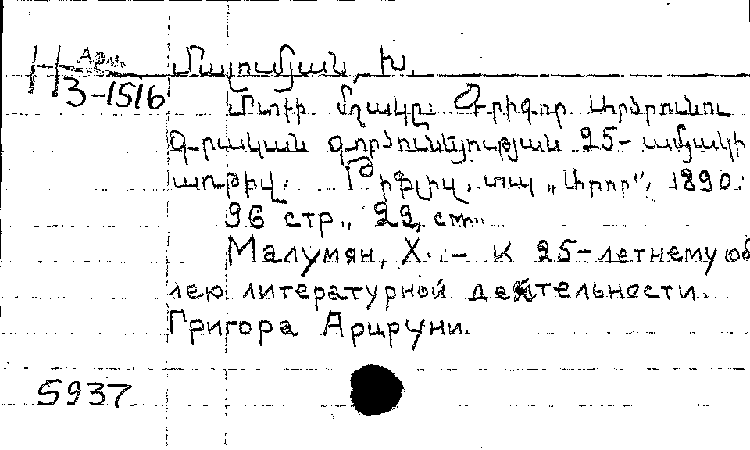 Арм.
Н
3-1516
Մալումյան, Խ.
Մտքի մշակը. Գրիգոր Արծրունու
գրական գործունեության 25-ամյակի
առթիվ. Թիֆլիզ, տպ „Արոր“, 1890.
96 стр., 22 см.
Малумян, Х. – К 25-летнему юби
лею литературной деятельности
Григора Арцруни.
5937